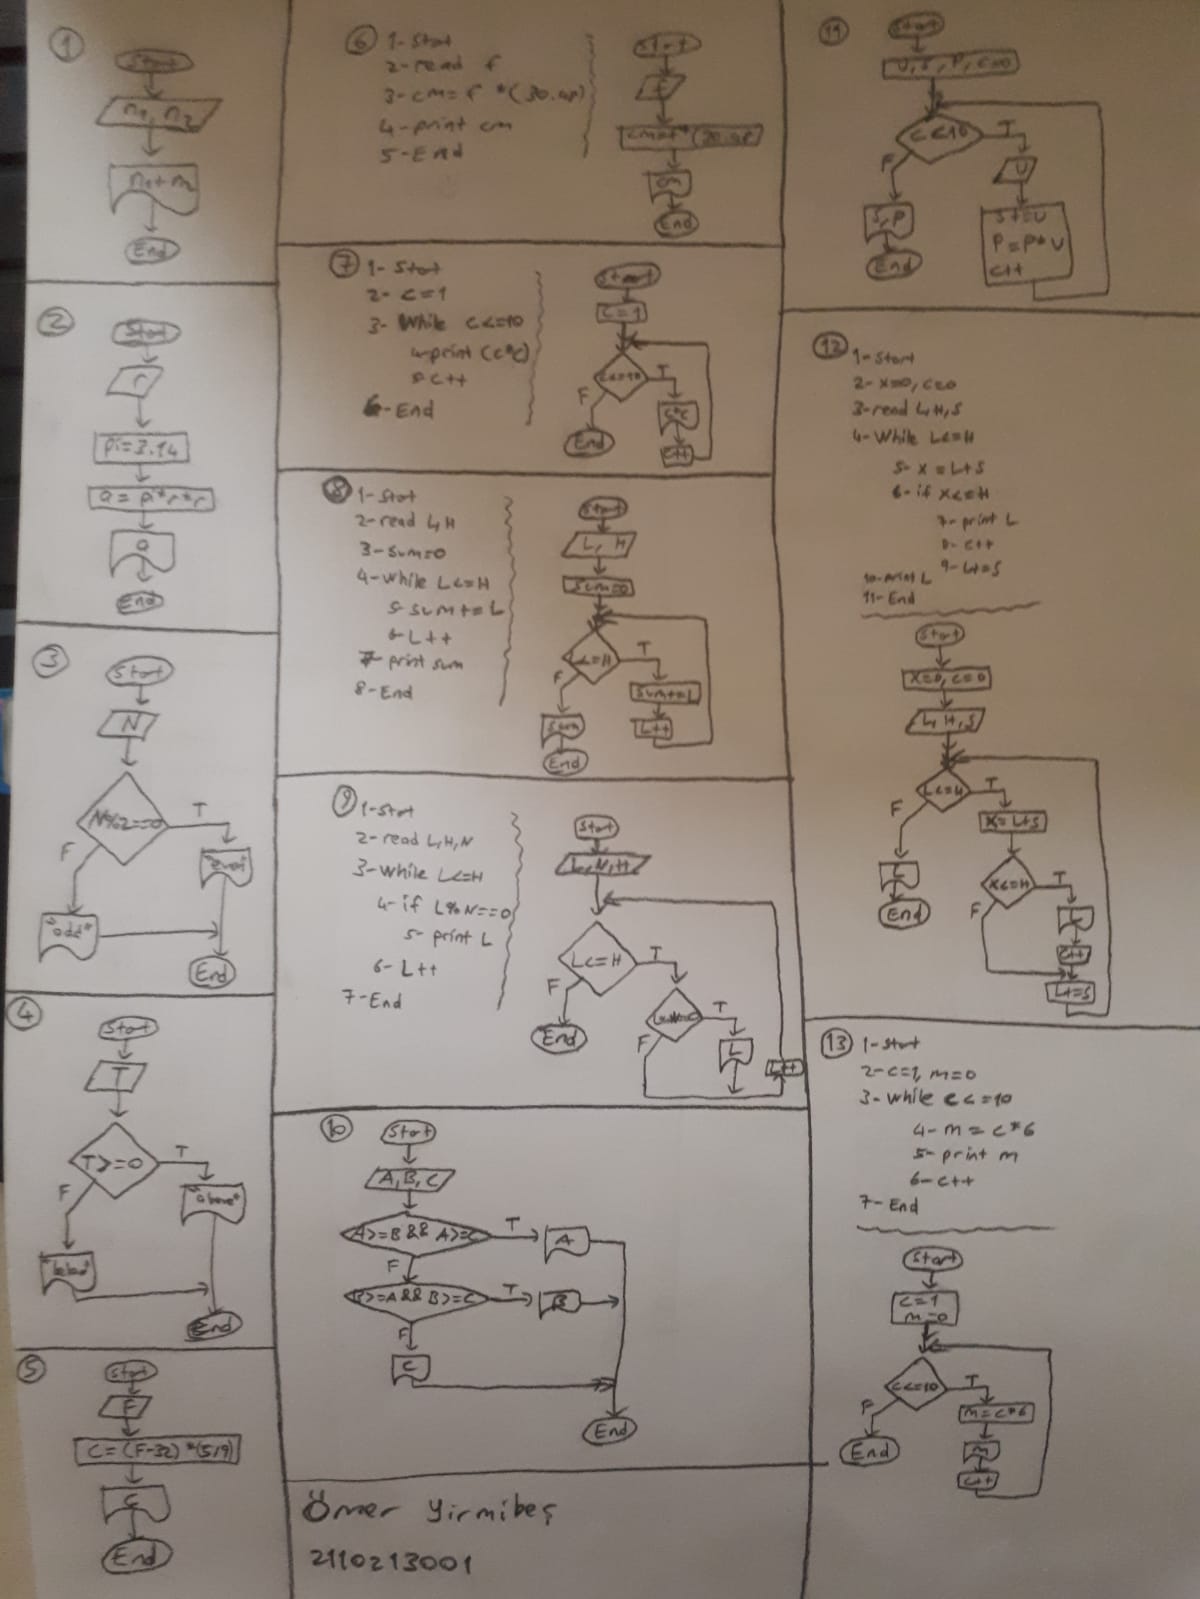 1
Start
n1, n2
n1+n2
End
2
Start
r
pi=3.14
a = pi*r*r
a
End
3
Start
N
N%2==0
T
F
"even"
"odd"
End
4
Start
T
T>=0
T
F
"above"
"below"
End
5
Start
F
C=(F-32)*(5/9)
C
End
6
1- Start
2- read f
3- cm= f *(30.48)
4- print cm
5- End
Start
f
cm=f*(30.48
cm
End
7
1- Start
2- c=1
3- While c<=10
4-print (c*c)
5- c++
6- End
Start
c=1
c<=10
T
F
c*c
c++
End
8
1- Start
2- read L,H
3- sum=0
4- while L<=H
5- sum+=L
6- L++
7- print sum
8- End
Start
L, H
sum=0
L<=H
T
F
sum+=L
L++
Sum
End
9
1- Start
2- read L,H,N
3- while L<=H
4- if L%N==0
5- print L
6- L++
7- End
Start
L,N,H
L<=H
T
F
L%N==0
T
F
L
L++
End
10
Start
A,B,C
A>=B && A>=C
T
A
F
B>=A && B>=C
T
B
F
C
End
Ömer Yirmibeş
2110213001
11
Start
U, S, P, C=0
c<10
T
F
U
S+=U
P=P*U
c++
S,P
End
12
1- Start
2- x=0, c=0
3- read L,H,S
4- While L<=H
5- x=L+S
6- if x<=H
7- print L
8- c++
9- L+=S
10- print L
11- End
Start
X=0, c=0
L,H,S
L<=H
T
F
X=L+S
X<=H
T
F
L
c++
L+=S
End
13
1- Start
2- c=1, m=0
3- while c<=10
4- m= c*6
5- print m
6- c++
7- End
Start
c=1
m=0
c<=10
T
F
m=c*6
m
c++
End